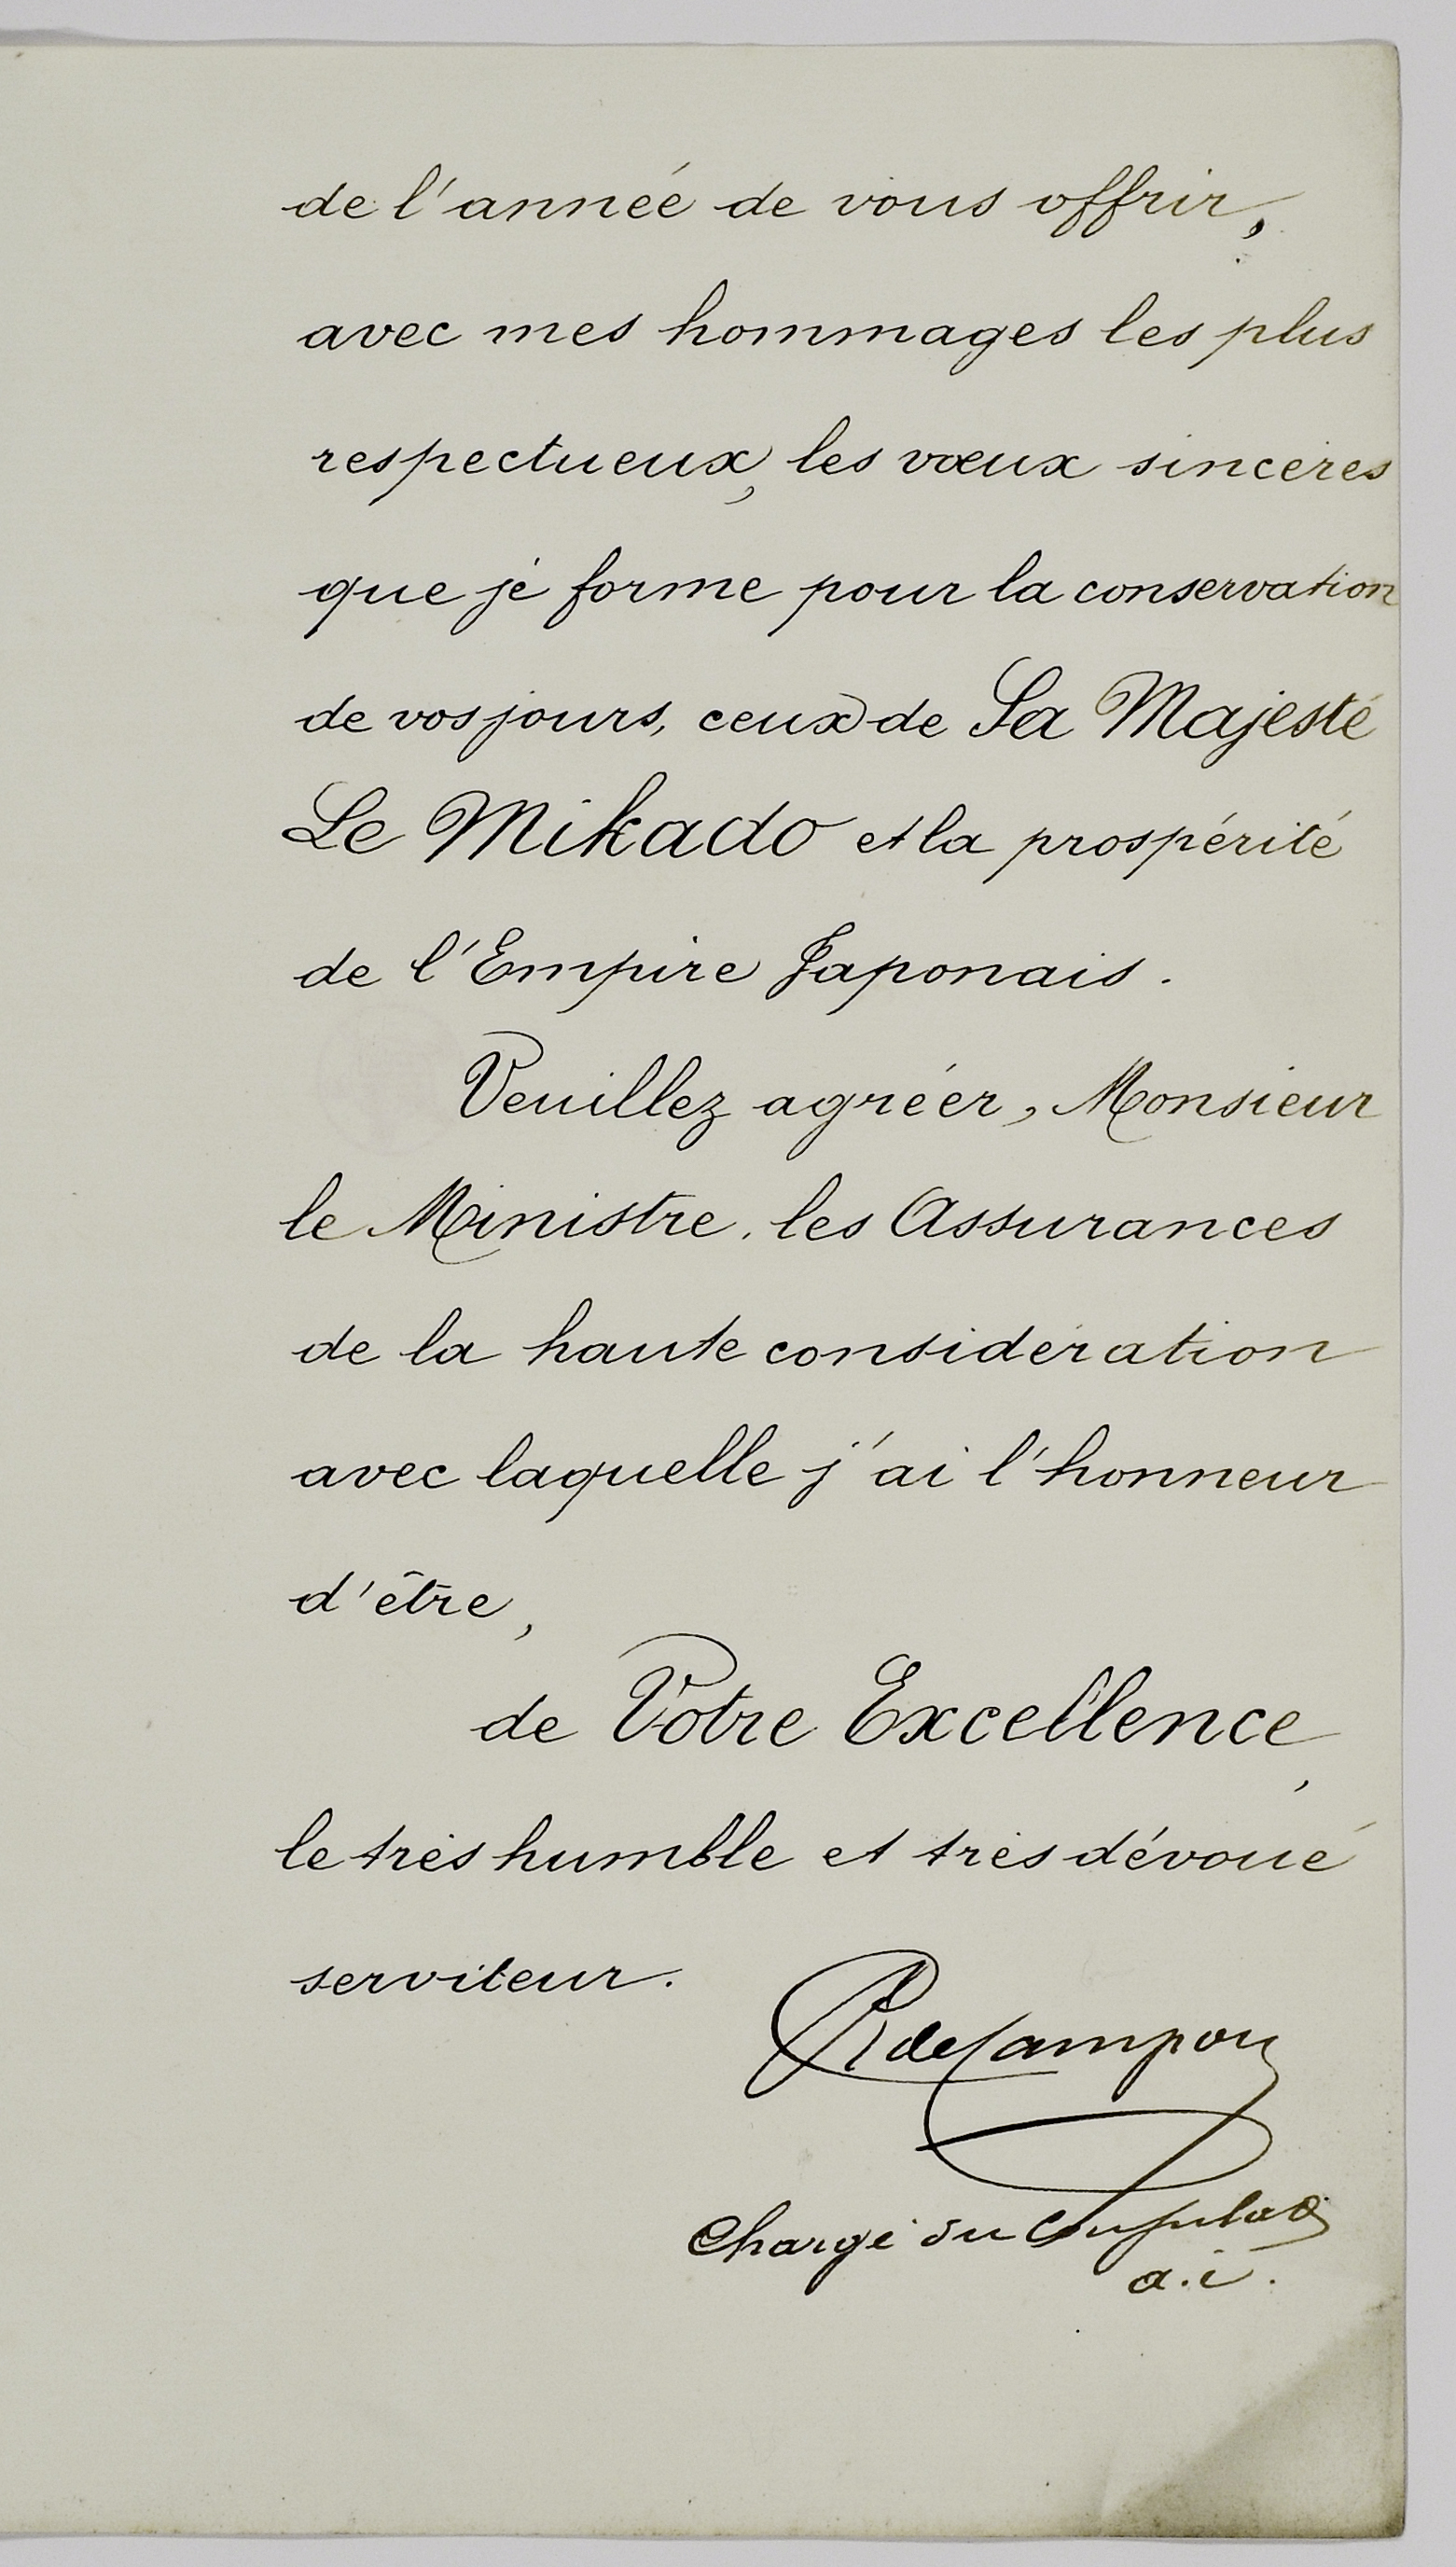 de l'année de vous offrir,
avec mes hommages les plus
respectueux, les vœux sincères
que je forme pour la conservation
de vos jours, ceux de Sa Majesté
Le Mikado et la prospérité
de l'Empire Japonais.
Veuillez agréer, Monsieur
le Ministre, les Assurances
de la haute considération
avec laquelle j'ai l'honneur
d'être,
de Votre Excellence,
le très humble et très dévoué
serviteur.
Chargé du Consulat
a.i.